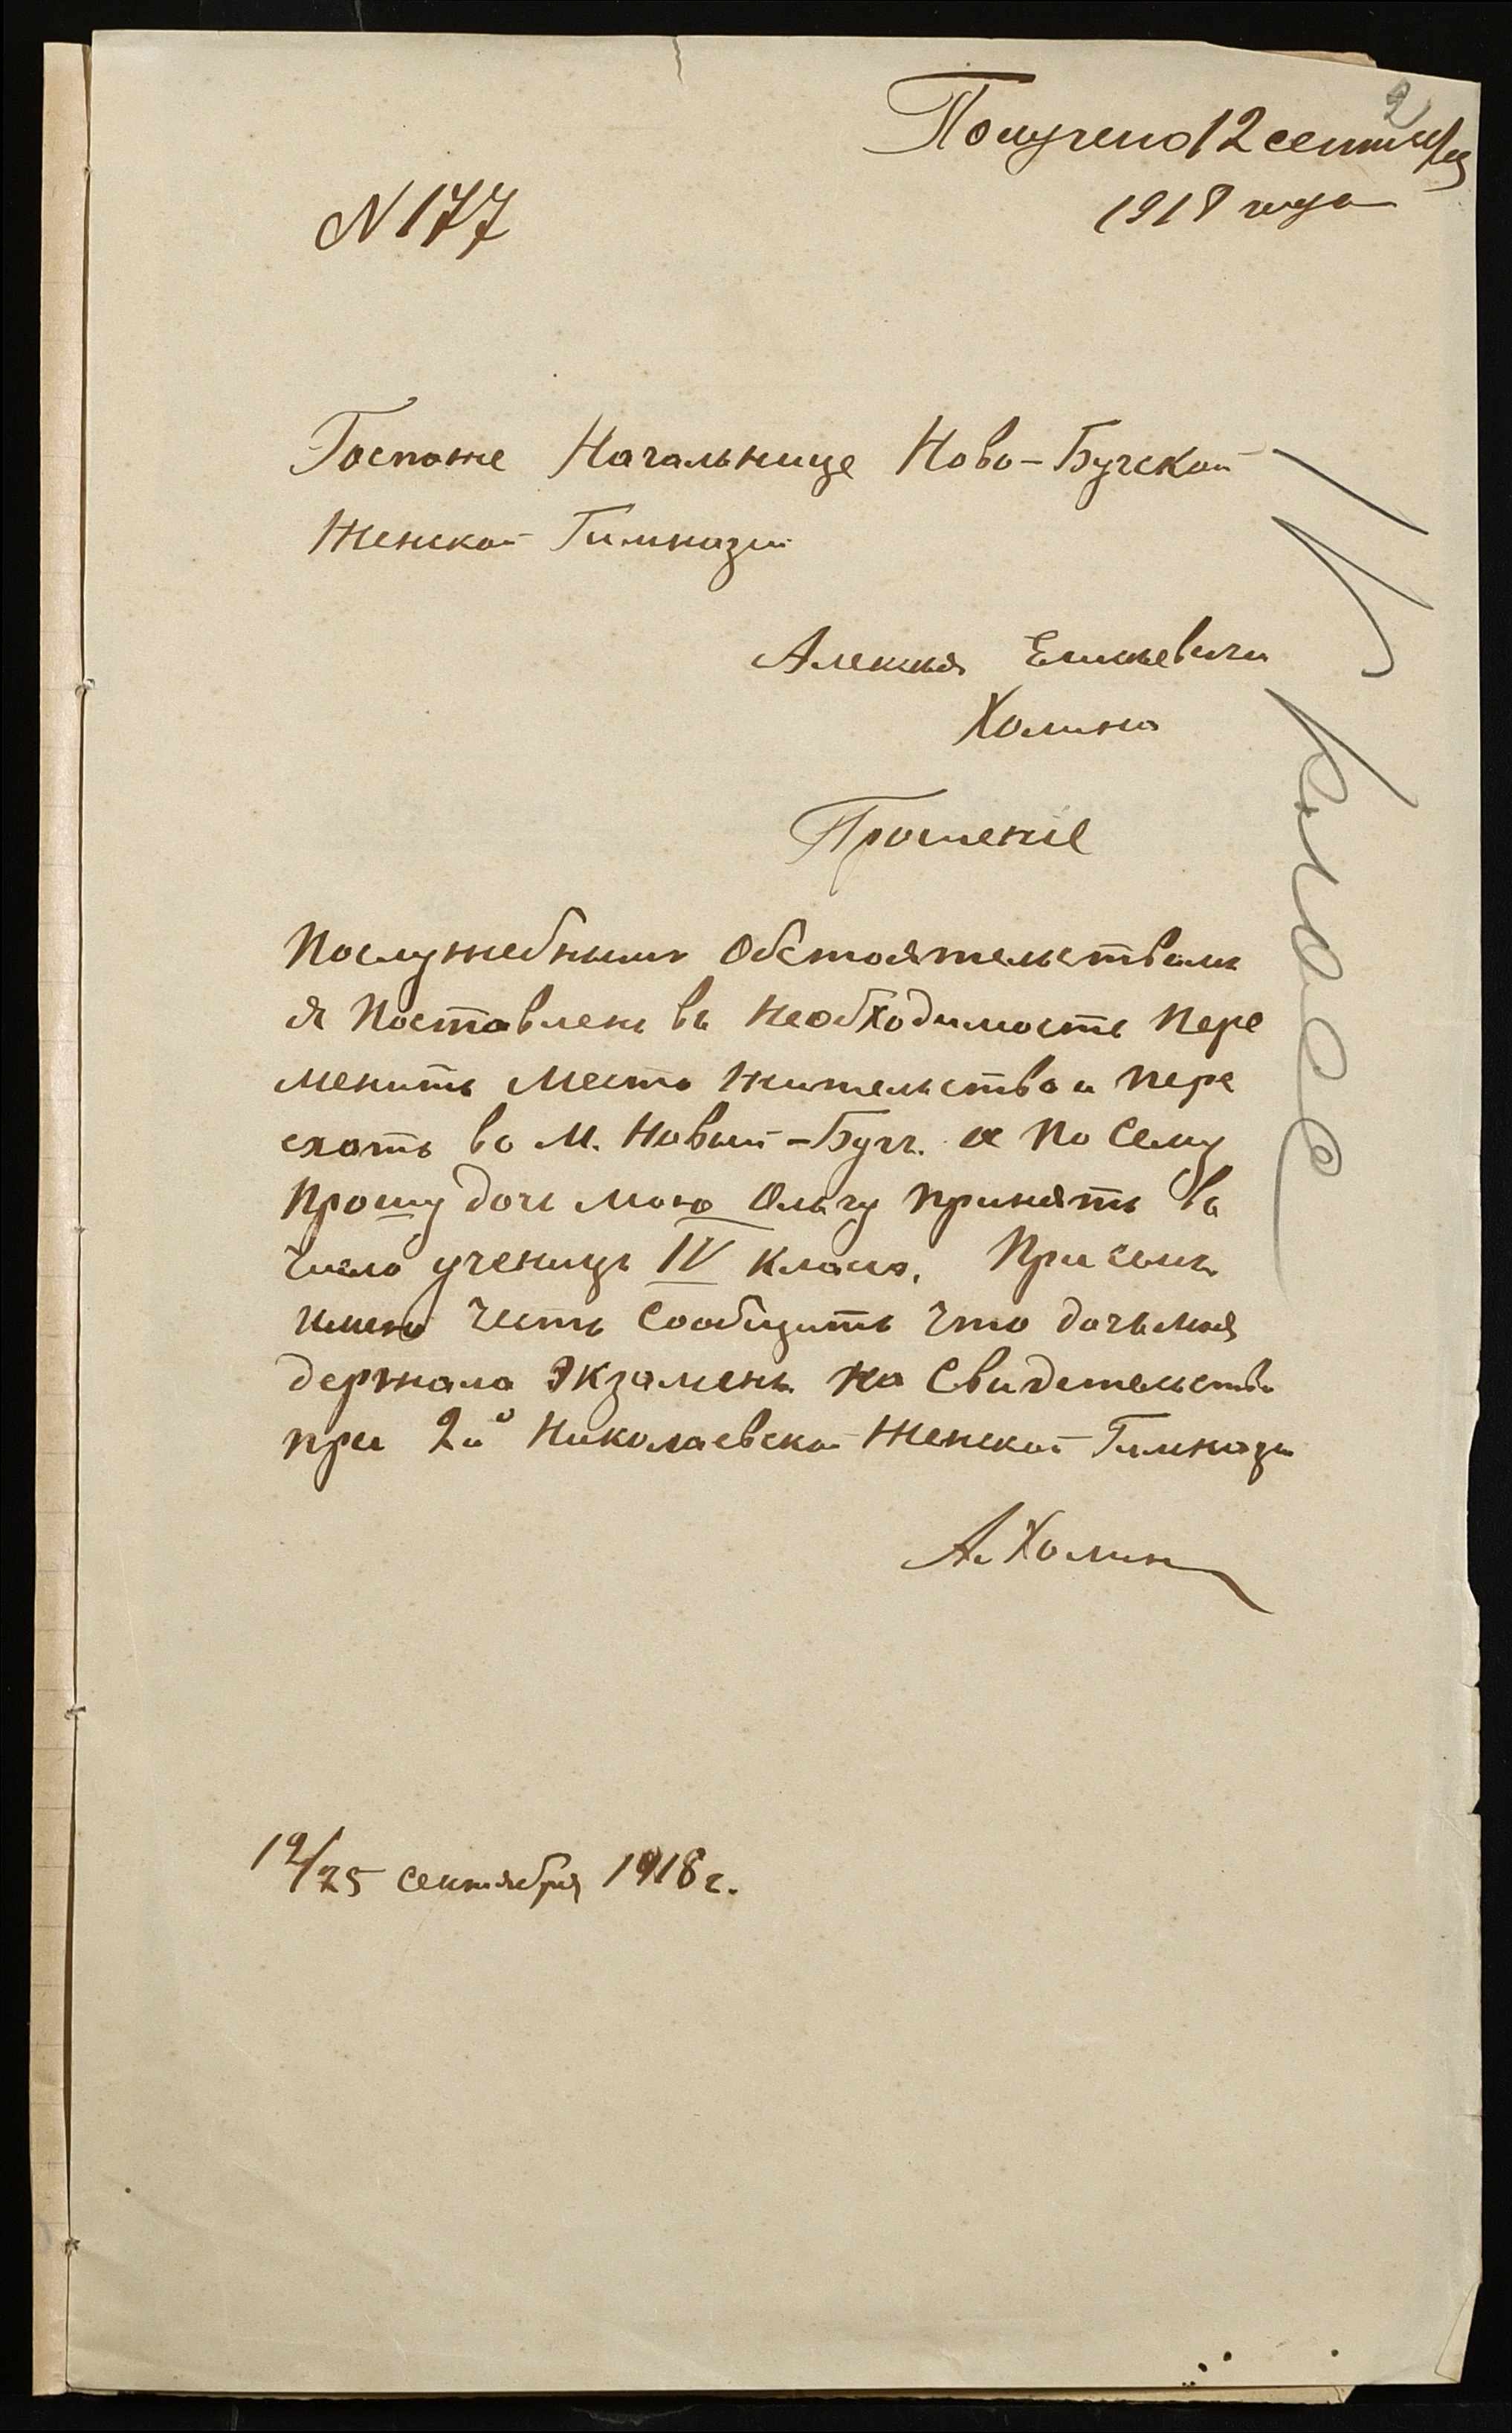 2
Получено 12 сентября
1918 года
N 177
Госпоже Начальнице Ново-Бугской
Женской Гимназии
Алексея
Холина
Прошеніе
Послужебнымъ Обстоятельствамъ
я Поставленъ въ Необходимость Пере
менить Место Жительства и пере
ехать во М. Новый-Бугъ. а По Сему
Прошу дочь мою Ольгу принять въ
Число ученицъ IV Класса. При семъ
имею Честь Сообщить Что дочь моя
держала Экзаменъ на Свидетельство
при 2й Николаевской Женской Гимназіи
А. Холин
12/25 сентября 1918 г.
IV класс